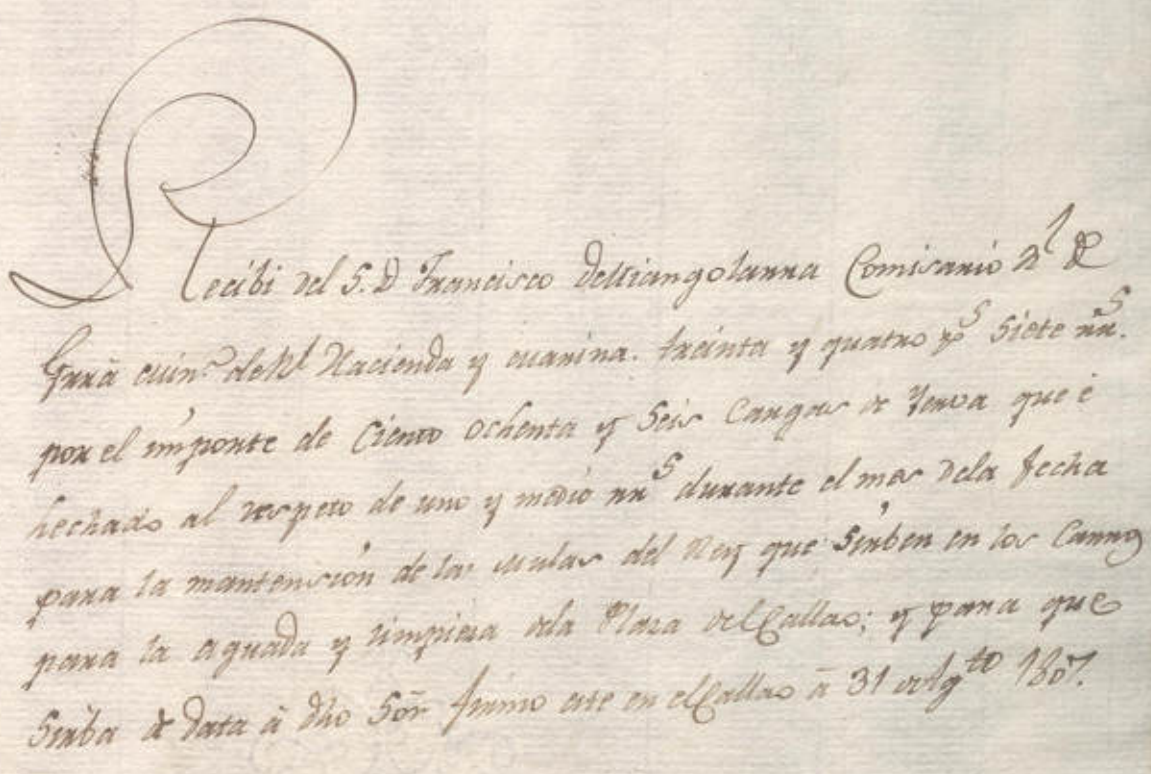 Recibi del S. D. Francisco de Mangolarra Comisario Rl. de
Grrã Minº. de Rl. Hacienda y Marina. treinta y quatro ps. siete rrs.
por el importe de Ciento ochenta y Seis Cargas de Yerva que é
hechado al respeto de uno y medio rrs. durante el mes dela fecha
para la mantension de las mulas del Rey que Sirben en los Carros
para la aguada y limpiesa dela Plasa del Callao; y para que
Sirba de data â dho Sõr firmo este en el Callao â 31 de Agto 1807.